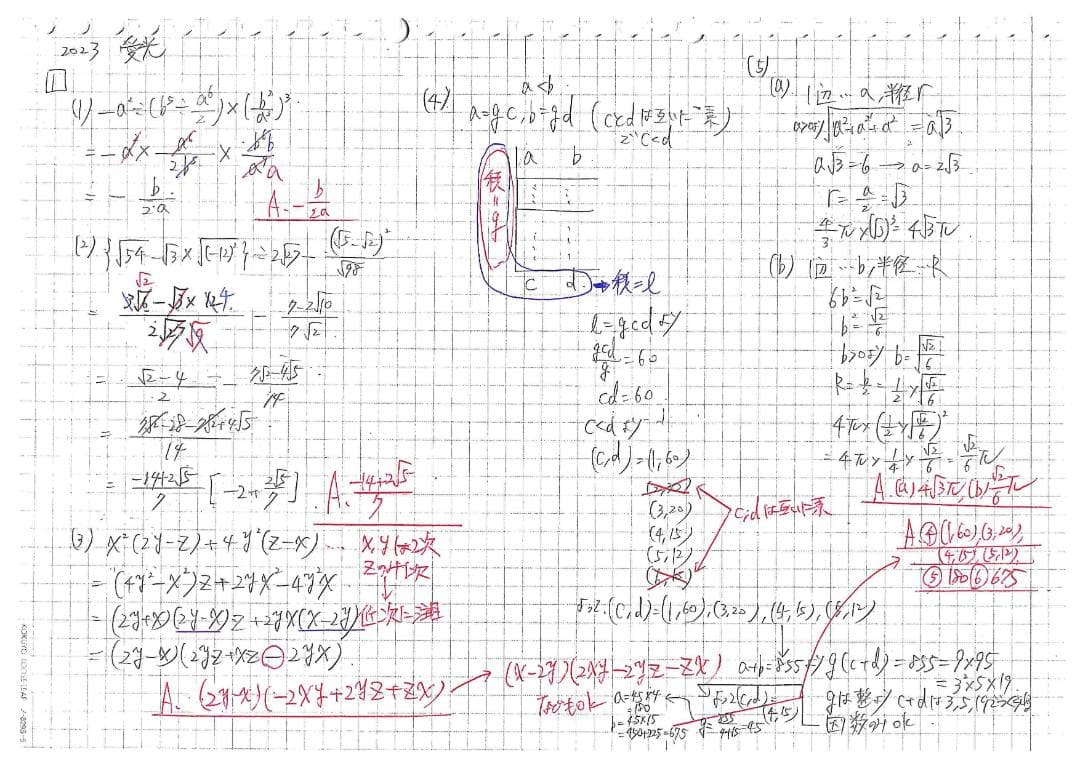 2023 愛光
1
(1) -a²÷(b⁵÷a⁶/2)×(b²/a³)³
= -a²× a⁶/2b⁵ × b⁶b/a⁹a
= - b/2a
A. -b/2a
(2) {√54-√3×√(-12)²}÷2√27-(√5-√2)²/√98
= (3√6-√3×12)/2√27 - (7-2√10)/7√2
= (√2-4)/2 - (7√2-4√5)/14
= (7√2-28-7√2+4√5)/14
= (-14+2√5)/7 [-2+2√5/7]
A. (-14+2√5)/7
(3) x²(2y-z)+4y²(z-x) … x,yは2次
zは1次
= (4y²-x²)z+2yx²-4y²x
= (2y+x)(2y-x)z+2yx(x-2y)
= (2y-x)(2yz+xz-2yx)
A. (2y-x)(-2xy+2yz+zx)
(x-2y)(2xy-2yz-zx)
などもok
(4) a<b
a=gc, b=gd (cとdは互いに素)
で c<d
a b
積=g
c d → 積=l
l=gcdより
gcd/g=60
cd=60
c<dより
(c,d)=(1,60)
(3,20)
(4,15)
(5,12)
c,dは互いに素
よって(c,d)=(1,60),(3,20),(4,15),(5,12)
a+b=855より g(c+d)=855=9×95
=3²×5×19
gは整数より c+dは3,5,19
因数のみok
よって(c,d)=(4,15)
g=855/(4+15)=45
a=45×4
=180
b=45×15
=450+225=675
(5)
(a) 1辺…a,半径r
a>0より √a²+a²+a² =a√3
a√3=6 → a=2√3
r=a/2=√3
4/3π×(√3)³=4√3π
(b) 1辺…b,半径…R
6b²=√2
b²=√2/6
b>0より b=√(√2/6)
R=b/2=1/2×√(√2/6)
4π×(1/2×√(√2/6))²
=4π×1/4×√2/6=√2/6π
A.(a)4√3π,(b)√2/6π
A.④(1,60),(3,20),
(4,15),(5,12)
⑤180⑥675